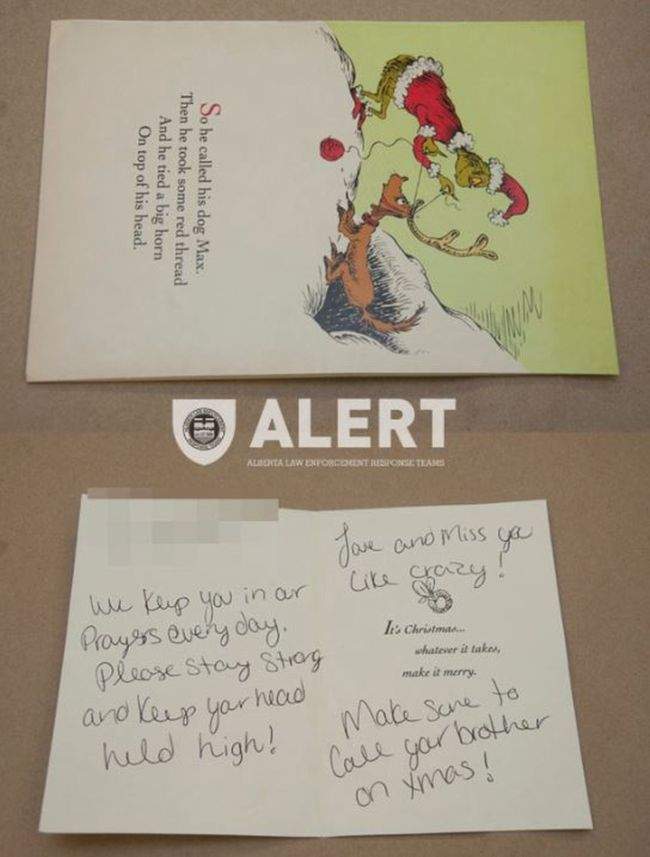 So he called his dog Max.
Then he took some red thread
And he tied a big horn
On top of his head.
ALERT
ALBERTA LAW ENFORCEMENT RESPONSE TEAMS
We keep you in our
Prayers every day.
Please stay strong
and keep your head
held high!
Love and Miss you
like crazy!
It's Christmas...
whatever it takes,
make it merry.
Make sure to
Call your brother
on xmas!